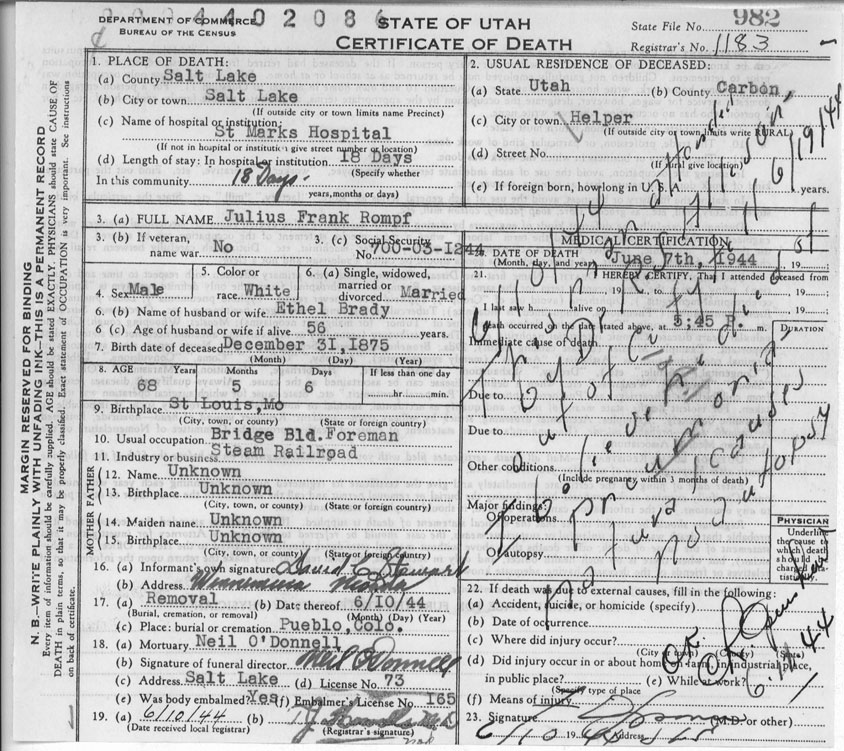 DEPARTMENT OF COMMERCE
BUREAU OF THE CENSUS
STATE OF UTAH
CERTIFICATE OF DEATH
State File No. 982
Registrar's No. 1183
MARGIN RESERVED FOR BINDING
N. B.—WRITE PLAINLY WITH UNFADING INK—THIS IS A PERMANENT RECORD
Every item of information should be carefully supplied. AGE should be stated EXACTLY. PHYSICIANS should state CAUSE OF
DEATH in plain terms, so that it may be properly classified. Exact statement of OCCUPATION is very important. See instructions
on back of certificate.
1. PLACE OF DEATH:
(a) County Salt Lake
(b) City or town Salt Lake
(If outside city or town limits name Precinct)
(c) Name of hospital or institution:
St Marks Hospital
(If not in hospital or institution give street number or location)
(d) Length of stay: In hospital or institution 18 Days
(Specify whether
In this community 18 Days.
years, months or days)
2. USUAL RESIDENCE OF DECEASED:
(a) State Utah (b) County Carbon,
(c) City or town Helper
(If outside city or town limits write RURAL)
(d) Street No.
(If rural give location)
(e) If foreign born, how long in U. S. A. years.
3. (a) FULL NAME Julius Frank Rompf
3. (b) If veteran, name war No
3. (c) Social Security No. 700-03-1244
4. Sex Male
5. Color or race White
6. (a) Single, widowed, married or divorced Married
6. (b) Name of husband or wife Ethel Brady
6 (c) Age of husband or wife if alive 56 years.
7. Birth date of deceased December 31, 1875
(Month) (Day) (Year)
8. AGE Years Months Days If less than one day
68 5 6 hr. min.
9. Birthplace St Louis, Mo
(City, town, or county) (State or foreign country)
10. Usual occupation Bridge Bld. Foreman
11. Industry or business Steam Railroad
FATHER
12. Name Unknown
13. Birthplace Unknown
(City, town, or county) (State or foreign country)
MOTHER
14. Maiden name Unknown
15. Birthplace Unknown
(City, town, or county) (State or foreign country)
16. (a) Informant's own signature David C. Stewart
(b) Address Winnemucca Nevada
17. (a) Removal (b) Date thereof 6/10/44
(Burial, cremation, or removal) (Month) (Day) (Year)
(c) Place: burial or cremation Pueblo, Colo.
18. (a) Mortuary Neil O'Donnell
(b) Signature of funeral director Neil O'Donnell
(c) Address Salt Lake (d) License No. 73
(e) Was body embalmed? Yes (f) Embalmer's License No. 165
19. (a) 6/10/44 (b)
(Date received local registrar) (Registrar's signature)
MEDICAL CERTIFICATION
20. DATE OF DEATH June 7th, 1944
(Month, day, and year)
21. I HEREBY CERTIFY, That I attended deceased from
19 , to 19 ;
I last saw h alive on 19 ;
Death occurred on the date stated above, at 5:45 P. m.
DURATION
Immediate cause of death
Due to
Due to
Other conditions
(Include pregnancy within 3 months of death)
Major findings:
Of operations
Of autopsy
PHYSICIAN
Underline the cause to which death should be charged statistically.
pneumonia
natural causes
no autopsy
6/9/44
22. If death was due to external causes, fill in the following:
(a) Accident, suicide, or homicide (specify)
(b) Date of occurrence
(c) Where did injury occur?
(City or town) (County) (State)
(d) Did injury occur in or about home, on farm, in industrial place,
in public place? (e) While at work?
(Specify type of place
(f) Means of injury
23. Signature (M.D. or other)
Address